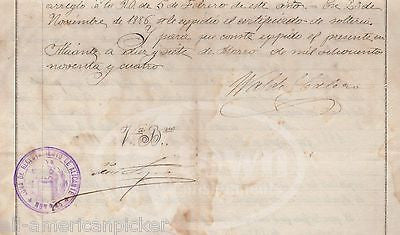 arreglo á la R.O. de 5 de Febrero de este año = En 20 de
Noviembre de 1886 se le expidió el certificado de soltería
Y para que conste expido el presente en
Alicante a diez y siete de Marzo de mil ochocientos
noventa y cuatro
V.º B.º
DE RECLUTAMIENTO DE ALICANTE
all-americanpicker